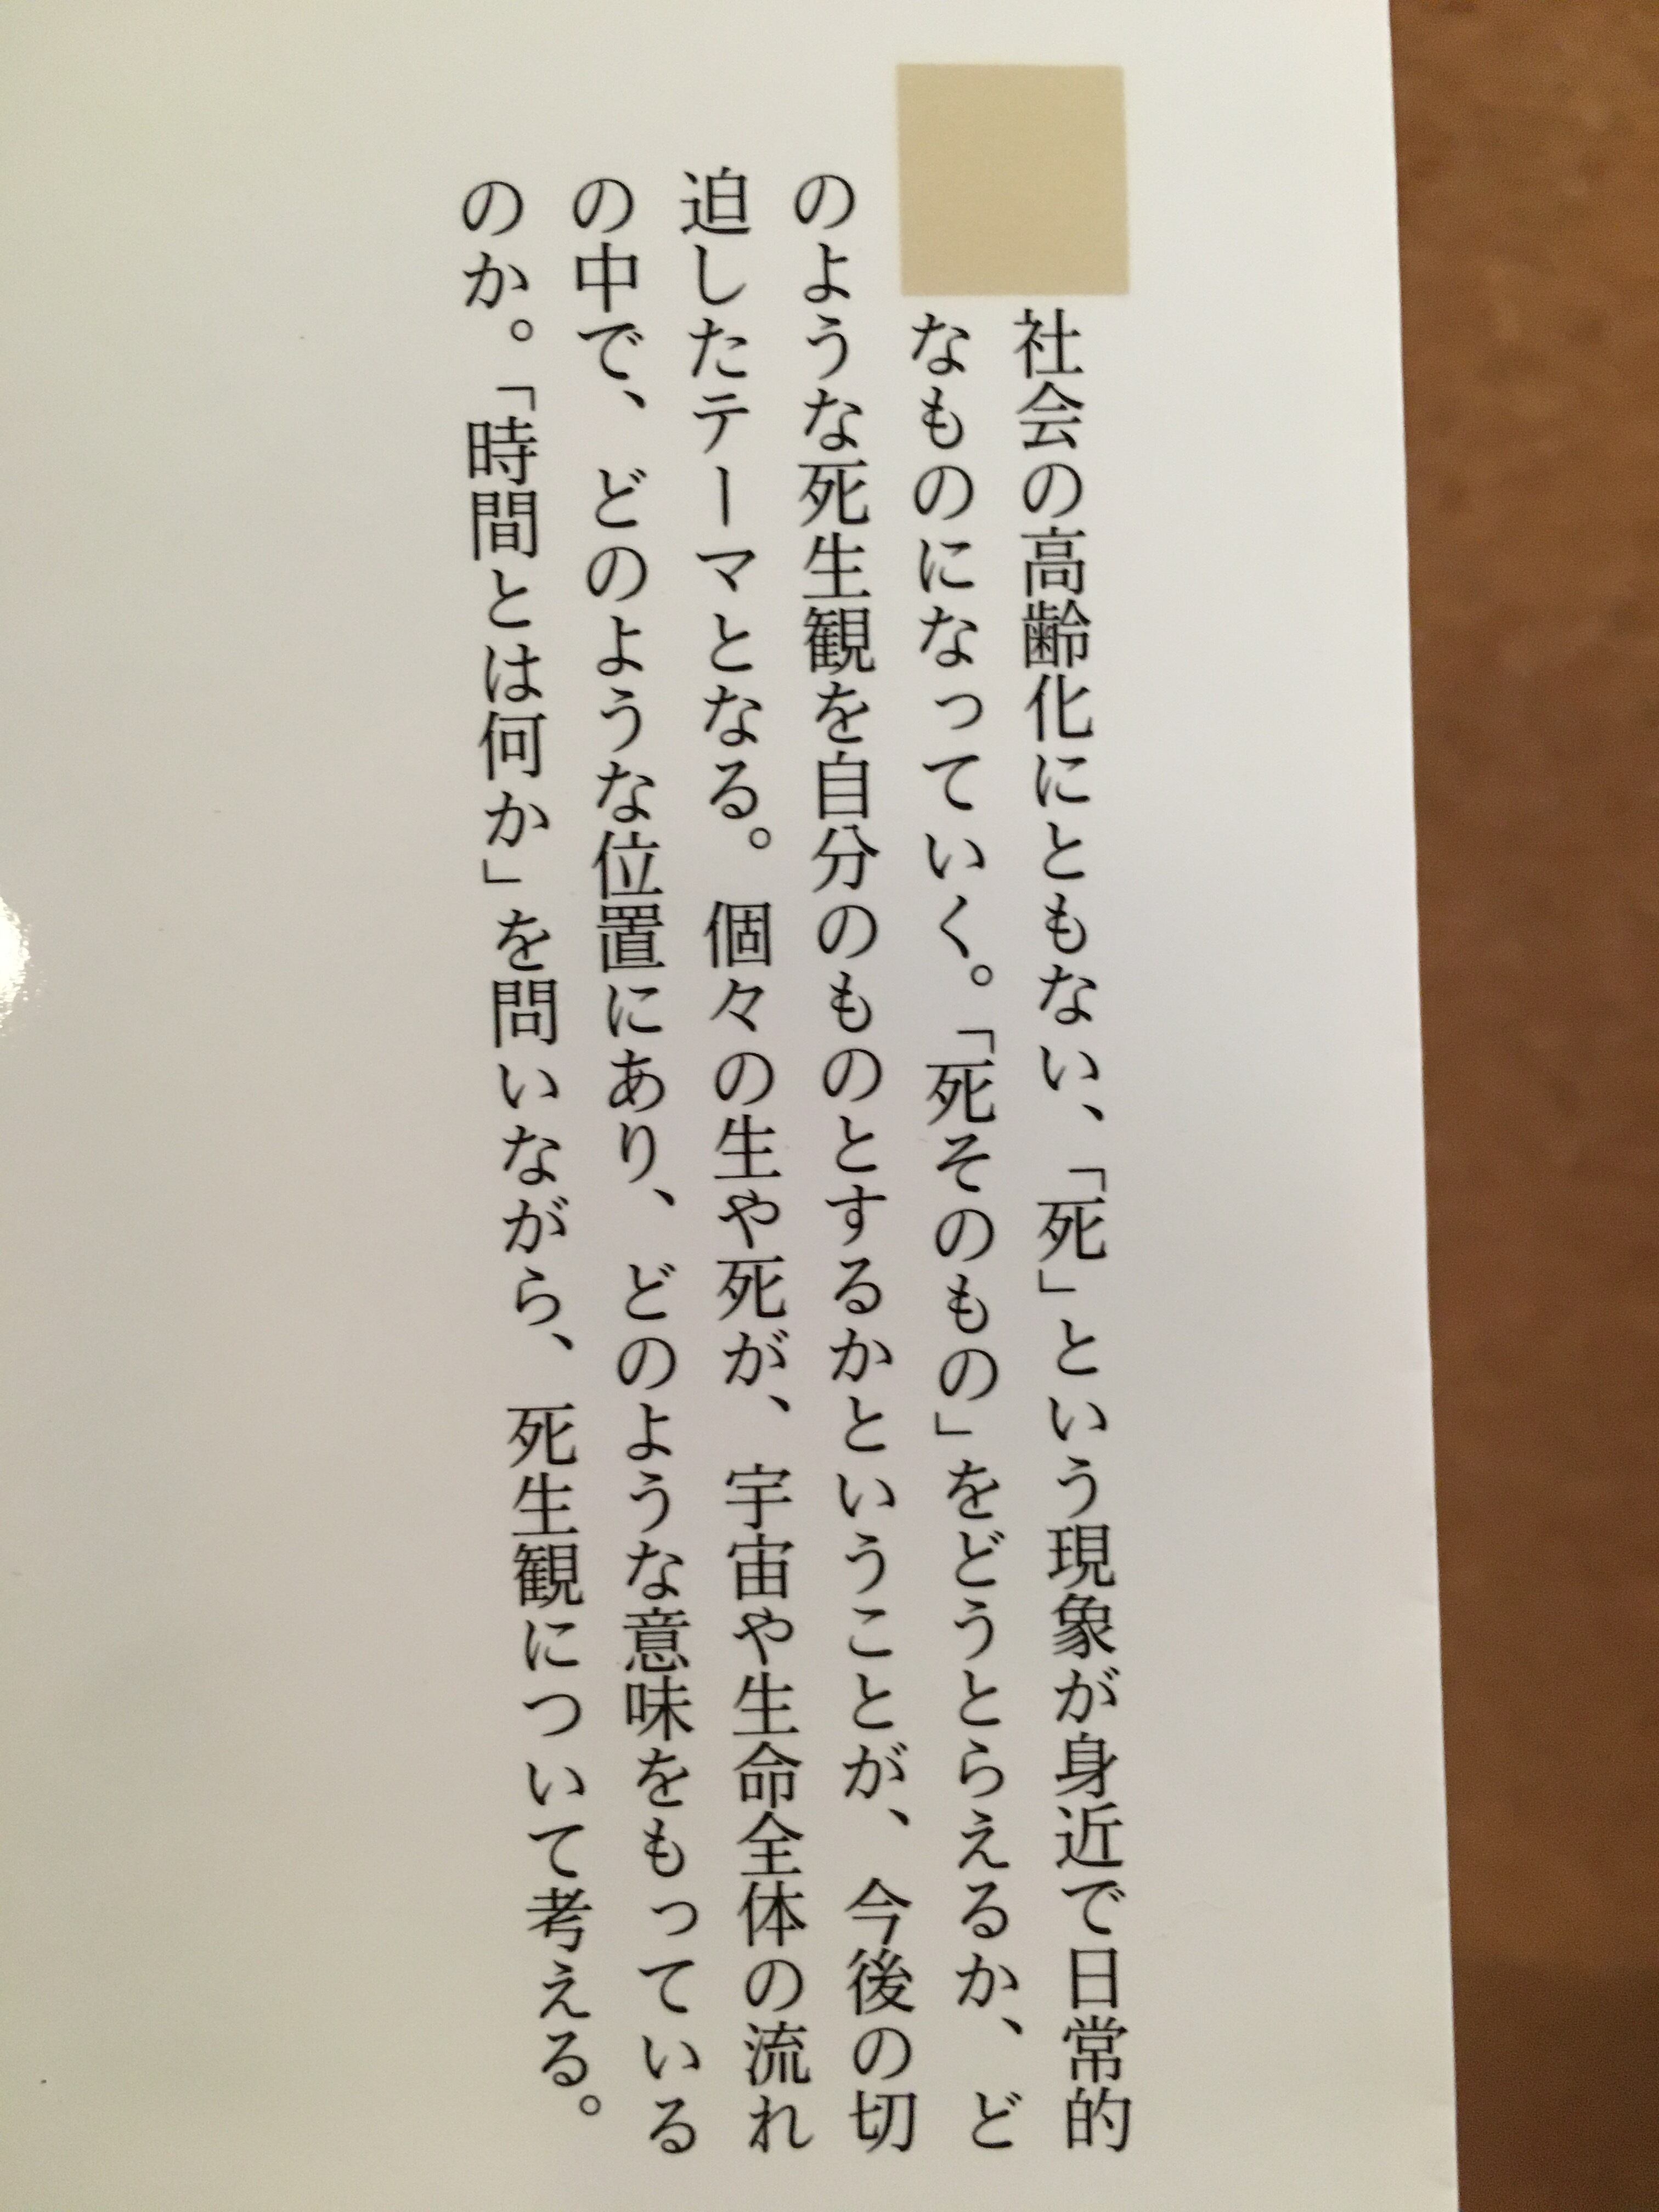 社会の高齢化にともない、「死」という現象が身近で日常的
なものになっていく。「死そのもの」をどうとらえるか、ど
のような死生観を自分のものとするかということが、今後の切
迫したテーマとなる。個々の生や死が、宇宙や生命全体の流れ
の中で、どのような位置にあり、どのような意味をもっている
のか。「時間とは何か」を問いながら、死生観について考える。